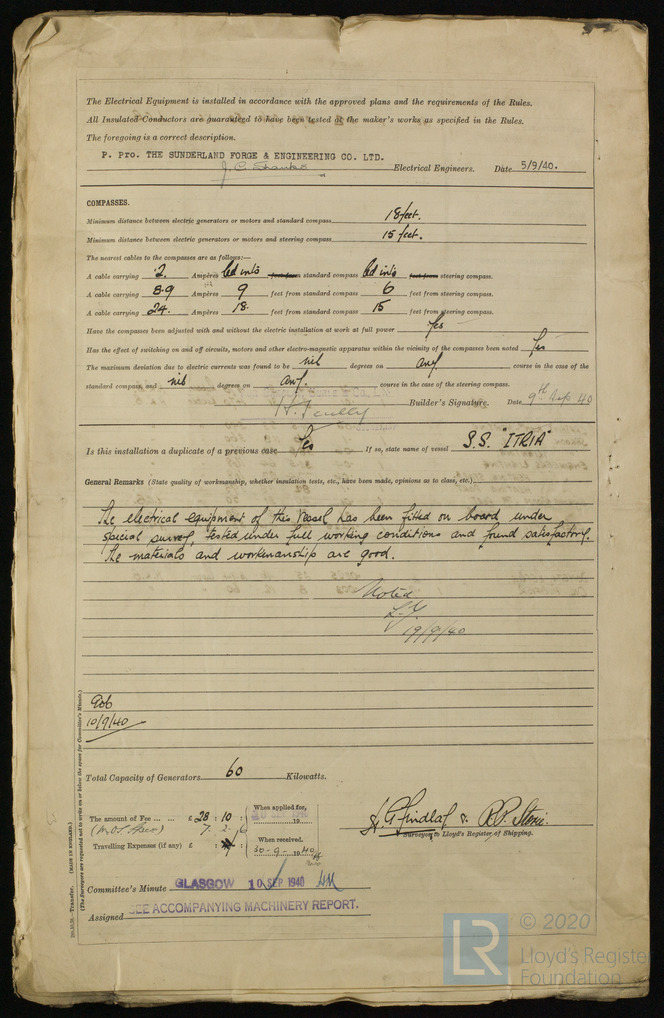 The Electrical Equipment is installed in accordance with the approved plans and the requirements of the Rules.
All Insulated Conductors are guaranteed to have been tested at the maker's works as specified in the Rules.
The foregoing is a correct description.
P. Pro. THE SUNDERLAND FORGE & ENGINEERING CO. LTD.
Electrical Engineers. Date 5/9/40.
COMPASSES.
Minimum distance between electric generators or motors and standard compass 18 feet.
Minimum distance between electric generators or motors and steering compass 15 feet.
The nearest cables to the compasses are as follows:—
A cable carrying .2. Ampères led into feet from standard compass led into feet from steering compass.
A cable carrying 8.9 Ampères 9 feet from standard compass 6 feet from steering compass.
A cable carrying 24. Ampères 18. feet from standard compass 15 feet from steering compass.
Have the compasses been adjusted with and without the electric installation at work at full power Yes
Has the effect of switching on and off circuits, motors and other electro-magnetic apparatus within the vicinity of the compasses been noted Yes
The maximum deviation due to electric currents was found to be nil degrees on any course in the case of the
standard compass, and nil degrees on any course in the case of the steering compass.
Builder's Signature. Date 9th Sep 40
Is this installation a duplicate of a previous case Yes If so, state name of vessel S.S. "ITRIA"
General Remarks (State quality of workmanship, whether insulation tests, etc., have been made, opinions as to class, etc.)
The electrical equipment of this vessel has been fitted on board under
special survey, tested under full working conditions and found satisfactory.
The materials and workmanship are good.
Noted
19/9/40
10/9/40
Total Capacity of Generators 60 Kilowatts.
The amount of Fee ... ... £ 28 : 10 : When applied for, 19
7. 2. 6
Travelling Expenses (if any) £ : : When received, 30-9-1940
H. G. Findlay & R. P. Stone.
Surveyor to Lloyd's Register of Shipping.
Committee's Minute GLASGOW 10 SEP 1940
Assigned SEE ACCOMPANYING MACHINERY REPORT.
Transfer. (MADE IN ENGLAND.)
(The Surveyors are requested not to write on or below the space for Committee's Minute.)
© 2020
LR Lloyd's Register
Foundation